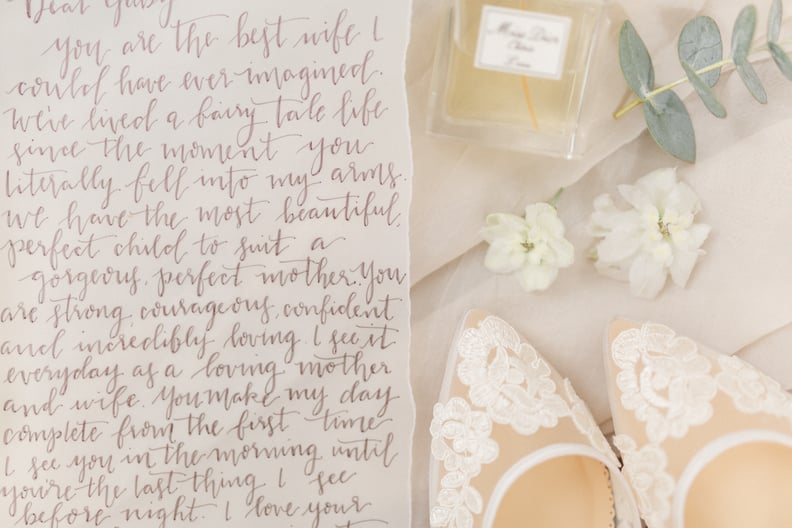 Dear Gaby
you are the best wife I
could have ever imagined.
We've lived a fairy tale life
since the moment you
literally fell into my arms.
we have the most beautiful,
perfect child to suit a
gorgeous, perfect mother. You
are strong, courageous, confident
and incredibly loving. I see it
everyday as a loving mother
and wife. You make my day
complete from the first time
I see you in the morning until
you're the last thing I see
before night. I love your
Miss Dior
Chérie
L'eau